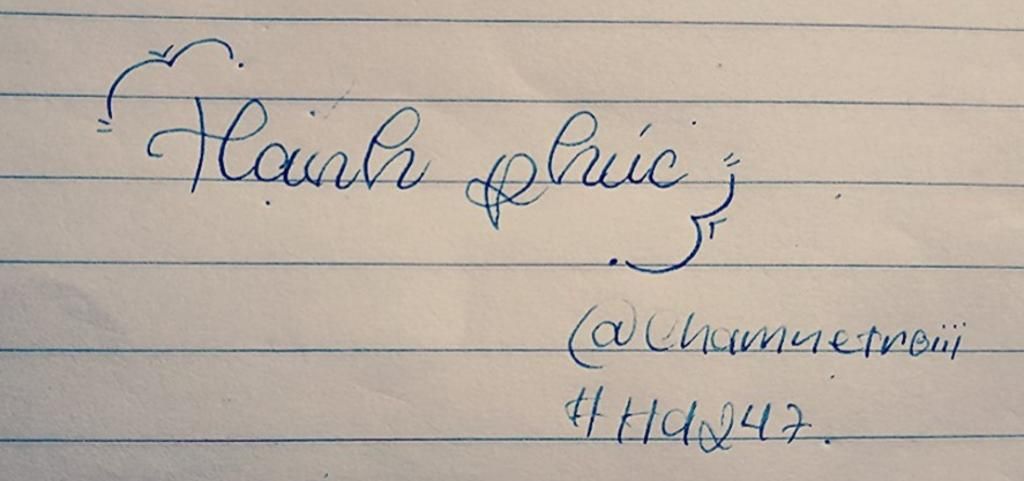 Hạnh phúc
@Chamnetroiii
#Hd247.